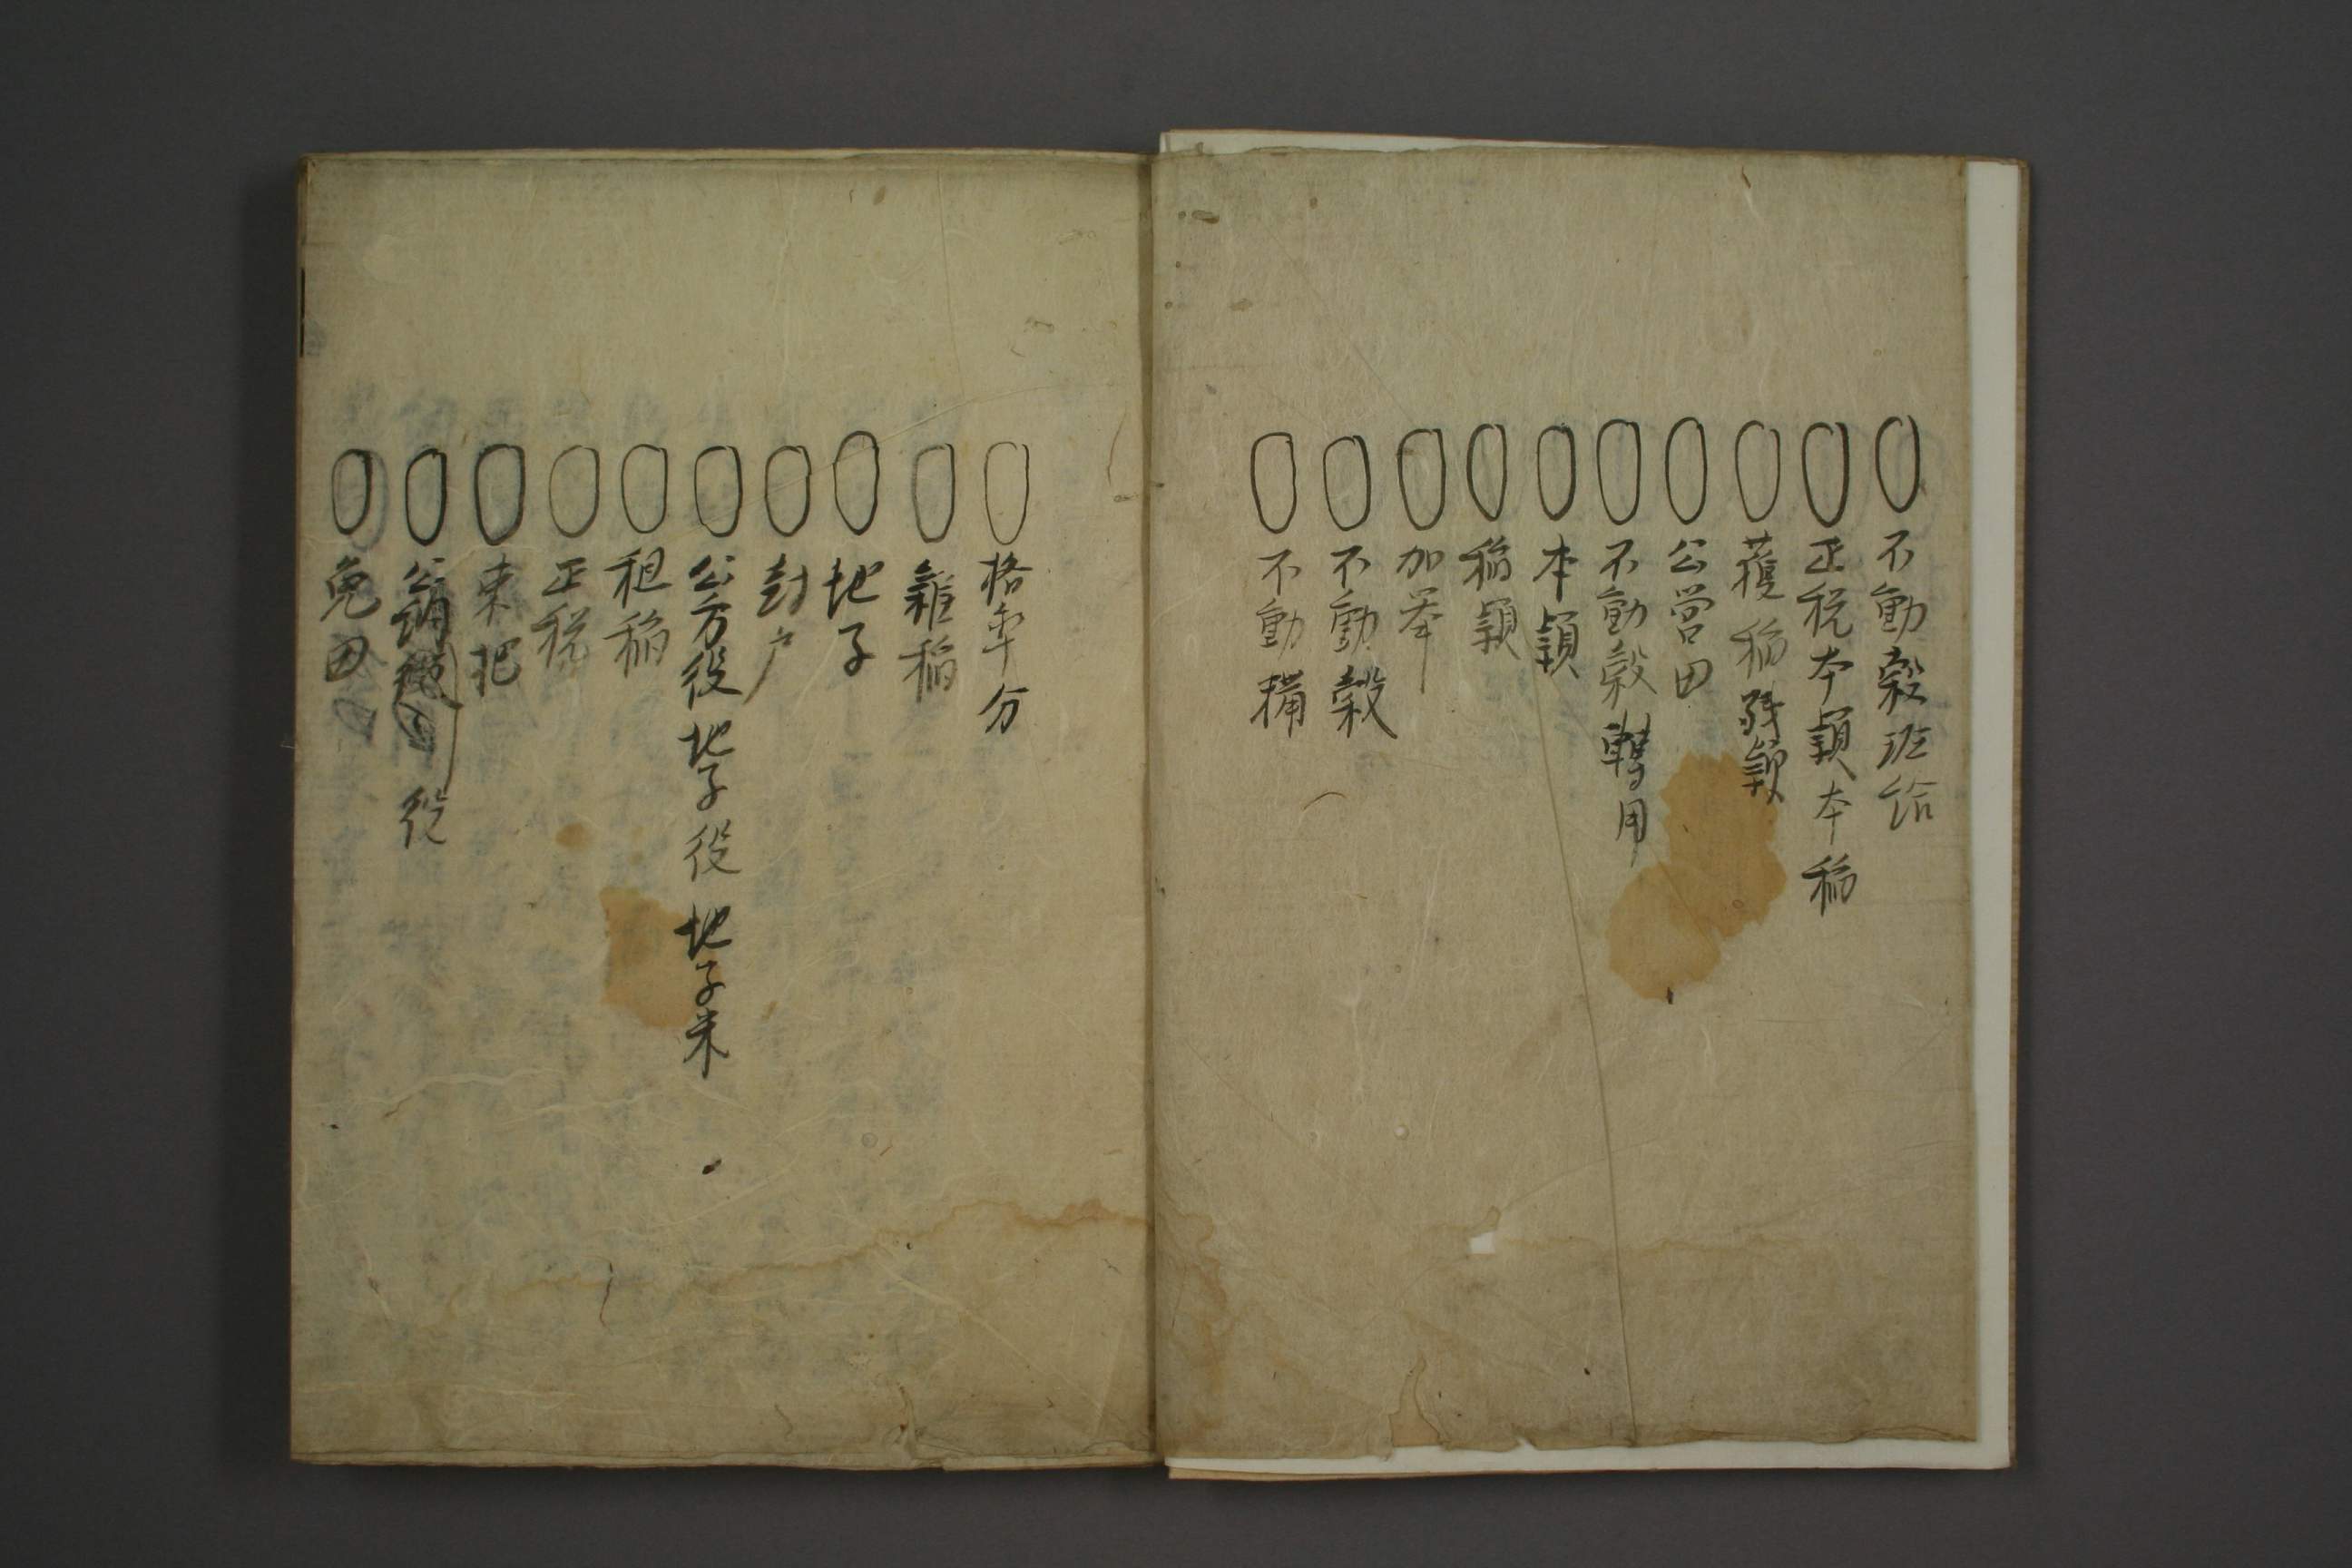 〇不動穀班給
〇正税本穎本稲
〇穫稲残穎
〇公営田
〇不動穀轉用
〇本穎
〇稲穎
〇加挙
〇不動穀
〇不動構
〇格率分
〇雜稲
〇地子
〇封戸
〇公方役地子役地子米
〇租稲
〇正税
〇束把
〇公役
〇免田